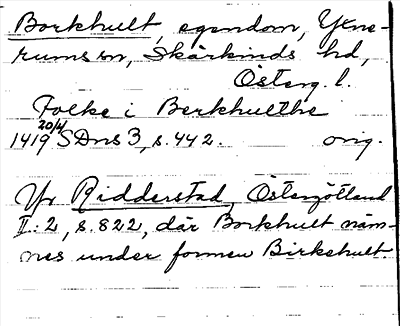 Borkhult, egendom, Yxne-
rums sn, Skärkinds hd,
Österg. l.
Folke i Berkhulthe
1419 20/4 SDns 3, s. 442. orig.
Jfr Ridderstad, Östergötland
II: 2, s. 822, där Borkhult näm-
nes under formen Birkehult.